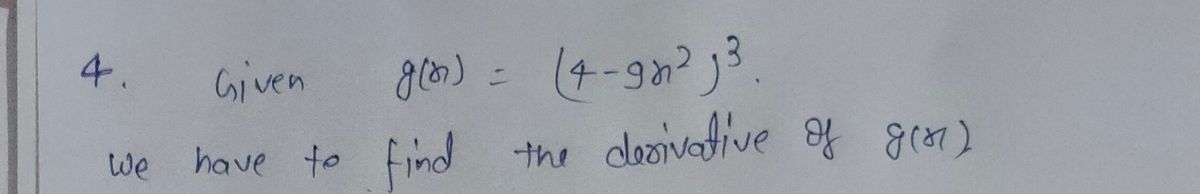 4. Given g(x) = (4-9x²)³.
We have to find the derivative of g(x)